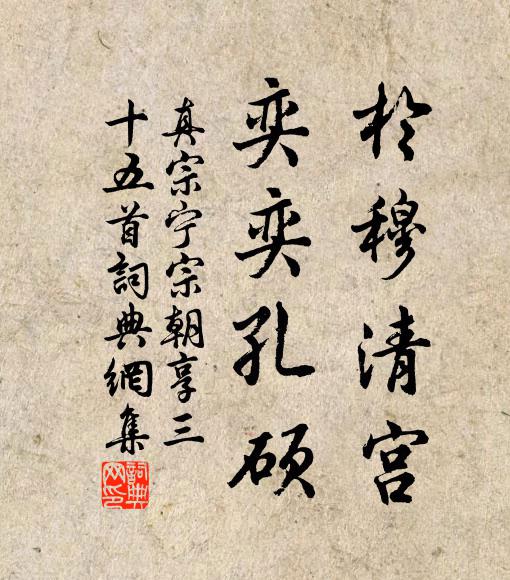 於穆清宫
奕奕孔硕
真宗宁宗朝享三
十五首詞典網集
詞典网印